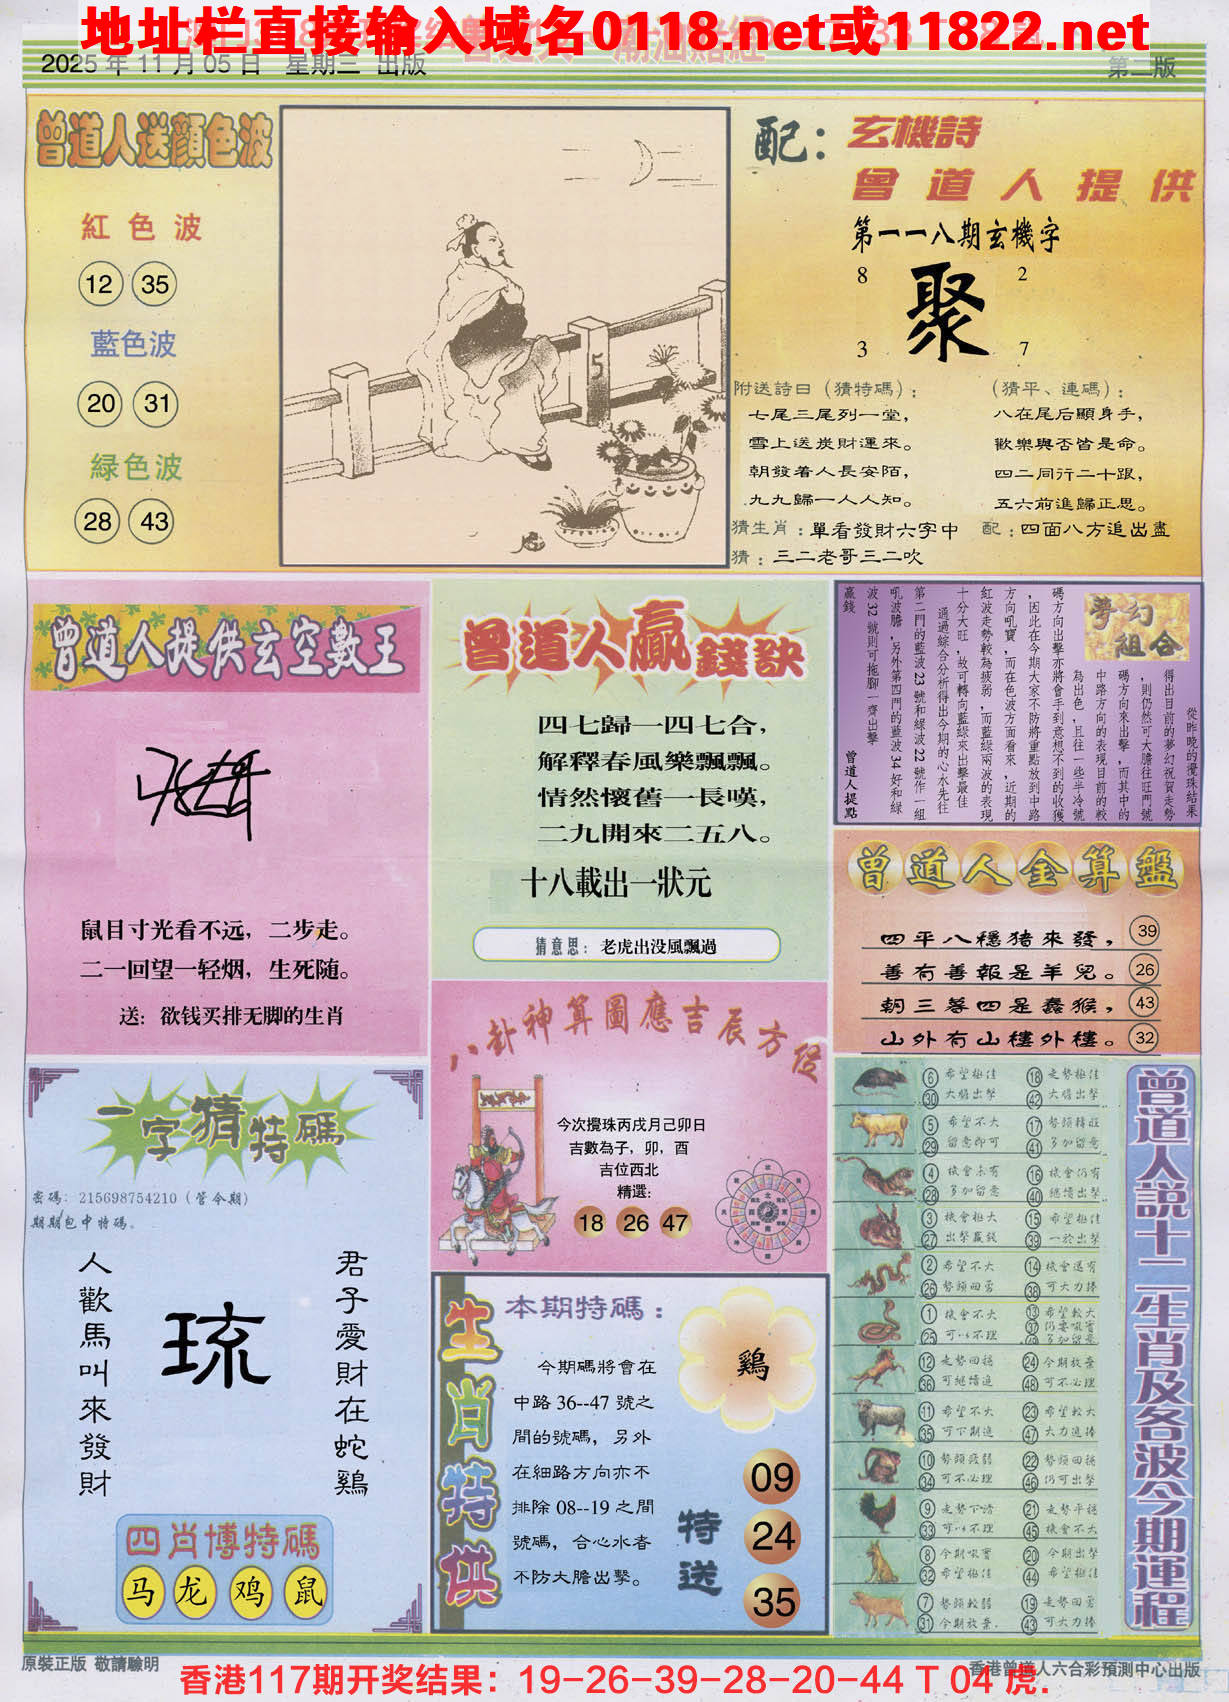 地址栏直接输入域名0118.net或11822.net
2025年11月05日 星期三 出版
第二版
曾道人送顏色波
紅色波
12 35
藍色波
20 31
緑色波
28 43
5
配：
玄機詩
曾道人提供
第一一八期玄機字
8 2
聚
3 7
附送詩曰（猜特碼）：
七尾三尾列一堂，
雪上送炭財運來。
朝發着人長安陌，
九九歸一人人知。
（猜平、連碼）：
八在尾后顯身手，
歡樂與否皆是命。
四二同行二十跟，
五六前進歸正思。
猜生肖：單看發財六字中
配：四面八方追出盡
猜：三二老哥三二吹
曾道人提供玄空數王
鼠目寸光看不远，二步走。
二一回望一轻烟，生死随。
送：欲钱买排无脚的生肖
曾道人贏錢訣
四七歸一四七合，
解釋春風樂飄飄。
情然懷舊一長嘆，
二九開來二五八。
十八載出一狀元
猜意思：老虎出没風飄過
夢幻
組合
從昨晚的攪珠結果
得出目前的夢幻祝賀走勢
，則仍然可大膽往旺門號
碼方向來出擊，而其中的
中路方向的表現目前的較
為出色，且往一些半冷號
碼方向出擊亦將會手到意想不到的收獲
，因此在今期大家不防將重點放到中路
方向吼寶，而在色波方面看來，近期的
紅波走勢較為疲弱，而藍緑兩波的表現
十分大旺，故可轉向藍緑來出擊最佳
通過綜合分析得出今期的心水先往
第二門的藍波23號和緑波22號作一組
吼波膽，另外第四門的藍波34好和緑
波32號則可拖腳一齊出擊
贏錢
曾道人提點
曾道人金算盤
四平八穩猪來發，39
善有善報是羊兒。26
朝三暮四是蠢猴，43
山外有山樓外樓。32
八卦神算圖應吉辰方位
今次攪珠丙戌月己卯日
吉數為子，卯，酉
吉位西北
精選：
18 26 47
一字猜特碼
密碼：215698754210（管令期）
期期包中特碼。
人歡馬叫來發財
琉
君子愛財在蛇鷄
四肖博特碼
马 龙 鸡 鼠
生肖特供
本期特碼：
今期碼將會在
中路36--47號之
間的號碼，另外
在細路方向亦不
排除08--19之間
號碼，合心水者
不防大膽出擊。
鷄
特送
09
24
35
曾道人説十二生肖及各波今期運程
6 30 希望極佳 大膽出擊 18 42 走勢極佳 大膽出擊
5 29 希望不大 留意即可 17 41 勢頭轉旺 多加留意
4 28 機會未有 多加留意 16 40 機會仍有 繼續出擊
3 27 機會極大 出擊贏錢 15 39 希望極佳 一於出擊
2 26 希望不大 勢頭回勇 14 38 機會還有 可大力捧
1 25 機會不大 可以不理 13 37 希望較大 仍要吼實 多加留意
12 36 走勢回穩 可繼續追 24 48 今期放棄 可不必理
11 35 希望不大 可下期追 23 47 希望較大 大力追捧
10 34 勢頭疲弱 可不必理 22 46 勢頭回穩 仍可出擊
9 33 走勢下滑 可以不理 21 45 走勢平穩 機會不大
8 32 今期吼實 希望極佳 20 44 今期出擊 希望極佳
7 31 勢頭較弱 今期放棄. 19 43 走勢回勇 可大力捧
原裝正版 敬請驗明
香港曾道人六合彩預測中心出版
香港117期开奖结果：19-26-39-28-20-44 T 04 虎.